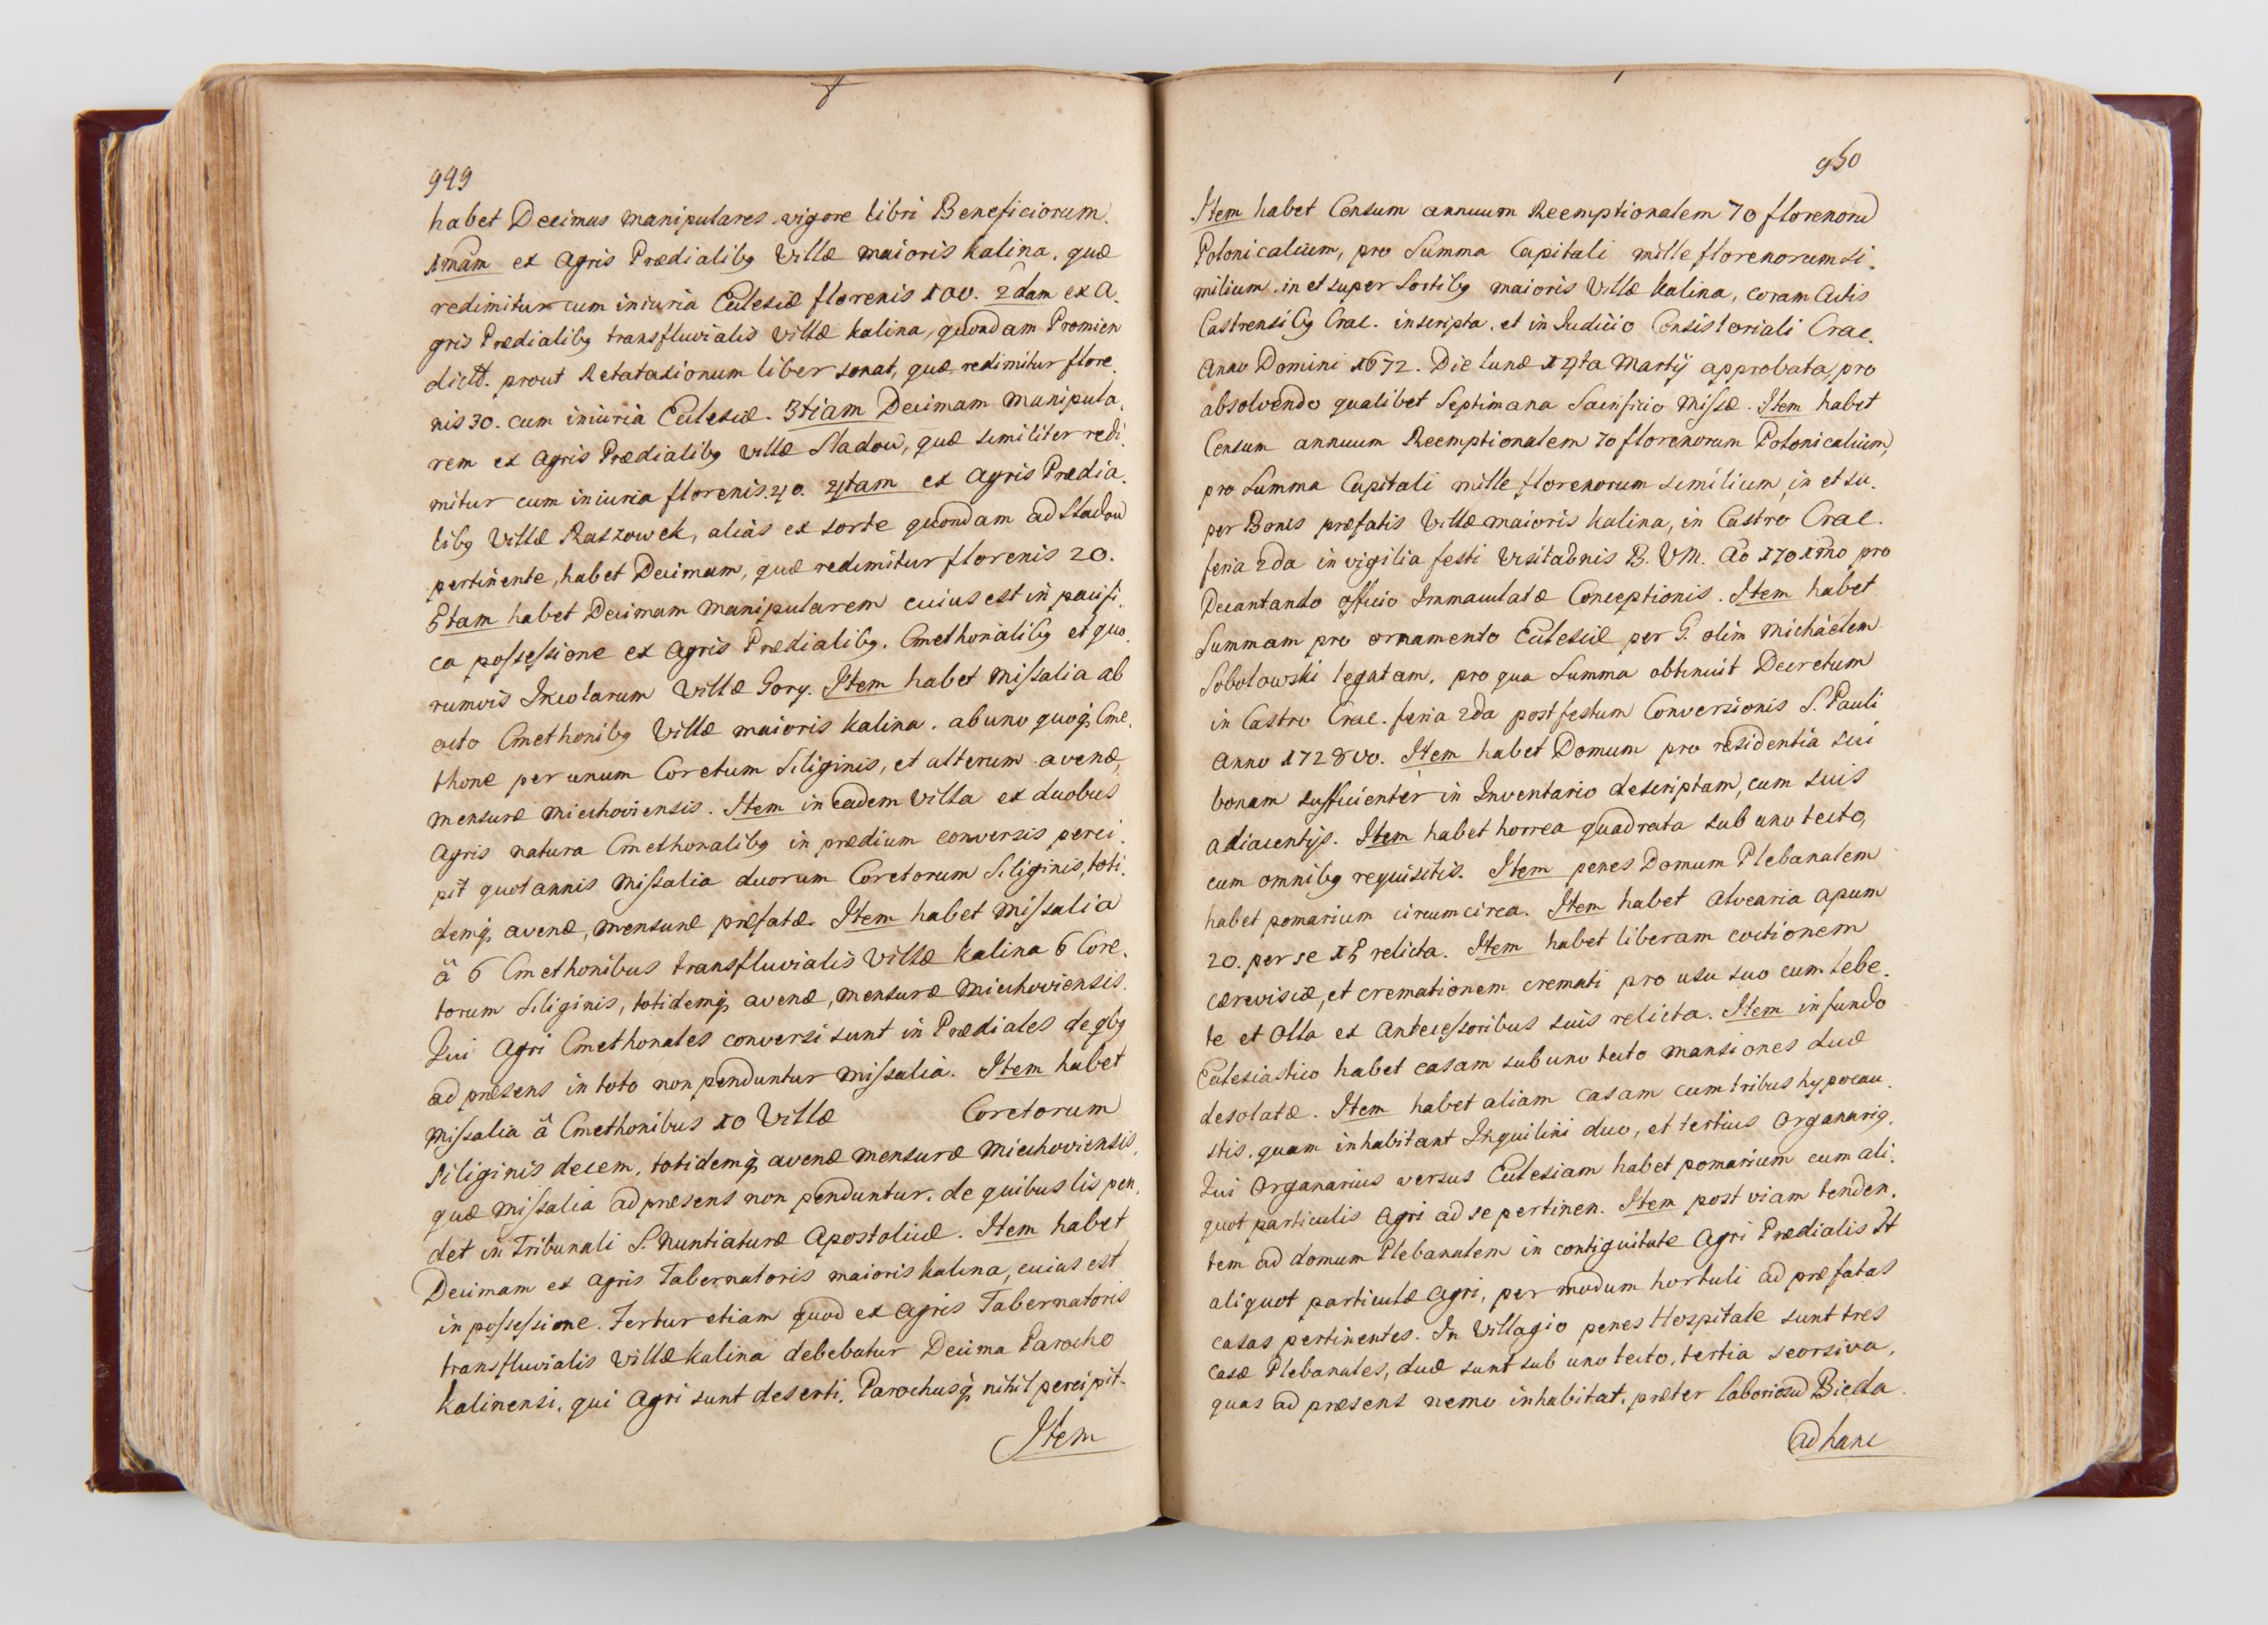 949
habet Decimas manipulares vigore libri Beneficiorum.
1mam ex Agris Prædialibg Villæ maioris Kalina, quæ
redimitur cum iniuria Ecclesiæ florenis 100. 2dam ex A.
gris Prædialibg transfluvialis Villæ Kalina, quondam Promien
dictæ. prout Retaxationum liber sonat, quæ redimitur flore.
nis 30. cum iniuria Ecclesiæ. 3tiam Decimam Manipula.
rem ex Agris Prædialibg Villæ Sladow, quæ similiter redi.
mitur cum iniuria florenis 40. 4tam ex Agris Prædia.
libg Villæ Raszowek, alias ex sorte quondam ad Sladow
pertinente, habet Decimam, quæ redimitur florenis 20.
5tam habet Decimam Manipularem cuius est in pacifi.
ca possessione ex Agris Prædialibg, Cmethonalibg et quo.
rumvis Incolarum Villæ Gory. Item habet Missalia ab
octo Cmethonibg Villæ maioris Kalina, ab uno quoq; Cme.
thone per unum Coretum Siliginis, et alterum avenæ,
mensuræ Miechoviensis. Item in eadem Villa ex duobus
Agris natura Cmethonalibg in prædium conversis perci.
pit quotannis Missalia duorum Coretorum Siliginis, toti.
demq; avenæ, mensuræ præfatæ. Item habet Missalia
â 6 Cmethonibus transfluvialis Villæ Kalina 6 Core.
torum Siliginis, totidemq; avenæ, mensuræ Miechoviensis.
Qui Agri Cmethonales conversi sunt in Prædiales de qbg
ad præsens in toto non penduntur Missalia. Item habet
Missalia â Cmethonibus 10 Villæ Coretorum
Siliginis decem, totidemq; avenæ mensuræ Miechoviensis,
quæ Missalia ad præsens non penduntur, de quibus lis pen.
det in Tribunali S. Nuntiaturæ Apostolicæ. Item habet
Decimam ex Agris Tabernatoris maioris Kalina, cuius est
in possessione. Fertur etiam quod ex Agris Tabernatoris
transfluvialis Villæ Kalina debebatur Decima Parocho
Kalinensi, qui Agri sunt deserti, Parochusq; nihil percipit.
Item
950
Item habet Censum annuum Reemptionalem 70 florenorũ
Polonicalium, pro Summa Capitali mille florenorum si.
milium, in et super Sortibg maioris Villæ Kalina, coram Actis
Castrensibg Crac. inscripta, et in Judicio Consistoriali Crac.
Anno Domini 1672. Die lunæ 14ta Martij approbata, pro
absolvendo qualibet Septimana Sacrificio Missæ. Item habet
Censum annuum Reemptionalem 70 florenorum Polonicalium,
pro Summa Capitali mille florenorum similium, in et su.
per Bonis præfatis Villæ maioris Kalina, in Castro Crac.
feria 2da in vigilia festi Visitaõnis B. V M. Ao 1701mo pro
Decantando officio Immaculatæ Conceptionis. Item habet
Summam pro ornamento Ecclesiæ per G. olim Michaelem
Sobolowski legatam, pro qua Summa obtinuit Decretum
in Castro Crac. feria 2da post festum Conversionis S. Pauli
Anno 1728vo. Item habet Domum pro residentia sui
bonam sufficienter in Inventario descriptam, cum suis
adiacentijs. Item habet horrea quadrata sub uno tecto,
cum omnibg requisitis. Item penes Domum Plebanalem
habet pomarium circumcirca. Item habet Alvearia Apum
20. per se 15 relicta. Item habet liberam coctionem
cærevisiæ, et cremationem cremati pro usu suo cum lebe.
te et Olla ex Antecessoribus suis relicta. Item in fundo
Ecclesiastico habet casam sub uno tecto mansiones duæ
desolatæ. Item habet aliam casam cum tribus hypocau.
stis, quam inhabitant Inquilini duo, et tertius Organarig.
Qui Organarius versus Ecclesiam habet pomarium cum ali.
quot particulis Agri ad se pertinen. Item post viam tenden.
tem ad domum Plebanalem in contiguitate Agri Prædialis st
aliquot particulæ Agri, per modum hortuli ad præfatas
casas pertinentes. In Villagio penes Hospitale sunt tres
Casæ Plebanales, duæ sunt sub uno tecto, tertia seorsiva,
quas ad præsens nemo inhabitat, præter laboriosũ Bieda.
Ad hanc